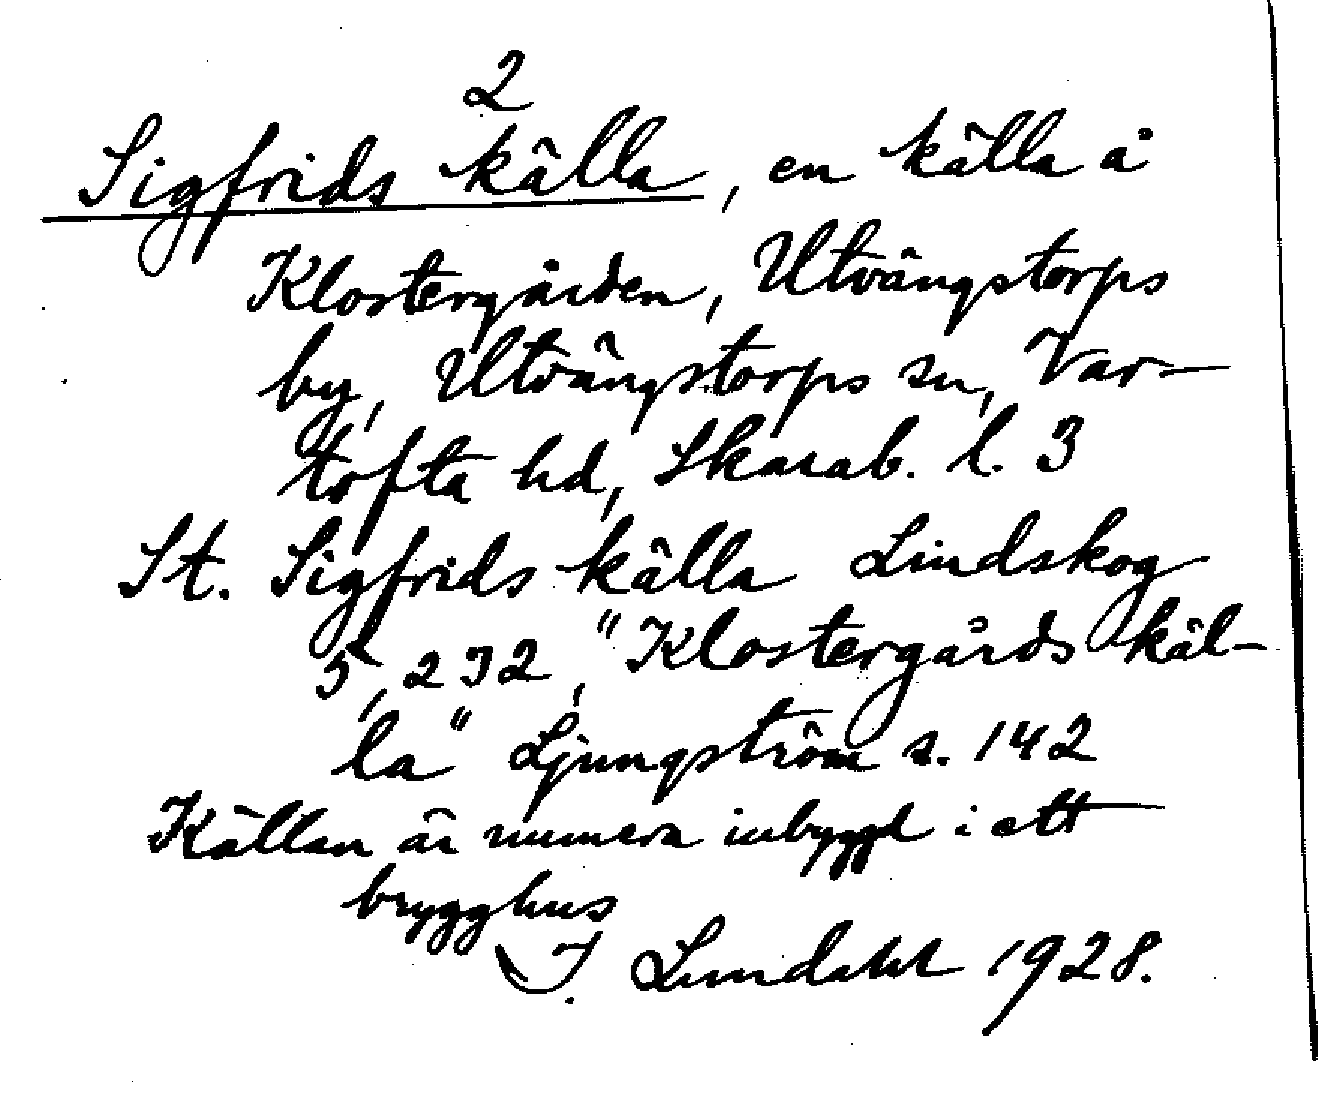 2
Sigfrids källa, en källa å
Klostergården, Utvängstorps
by, Utvängstorps sn, Var-
tofta hd, Skarab. l. 3
St. Sigfrids källa Lindskog
5, 232, "Klostergårds käl-
la" Ljungström s. 142
Källan är numera inbyggd i ett
brygghus
I. Lundahl 1928.